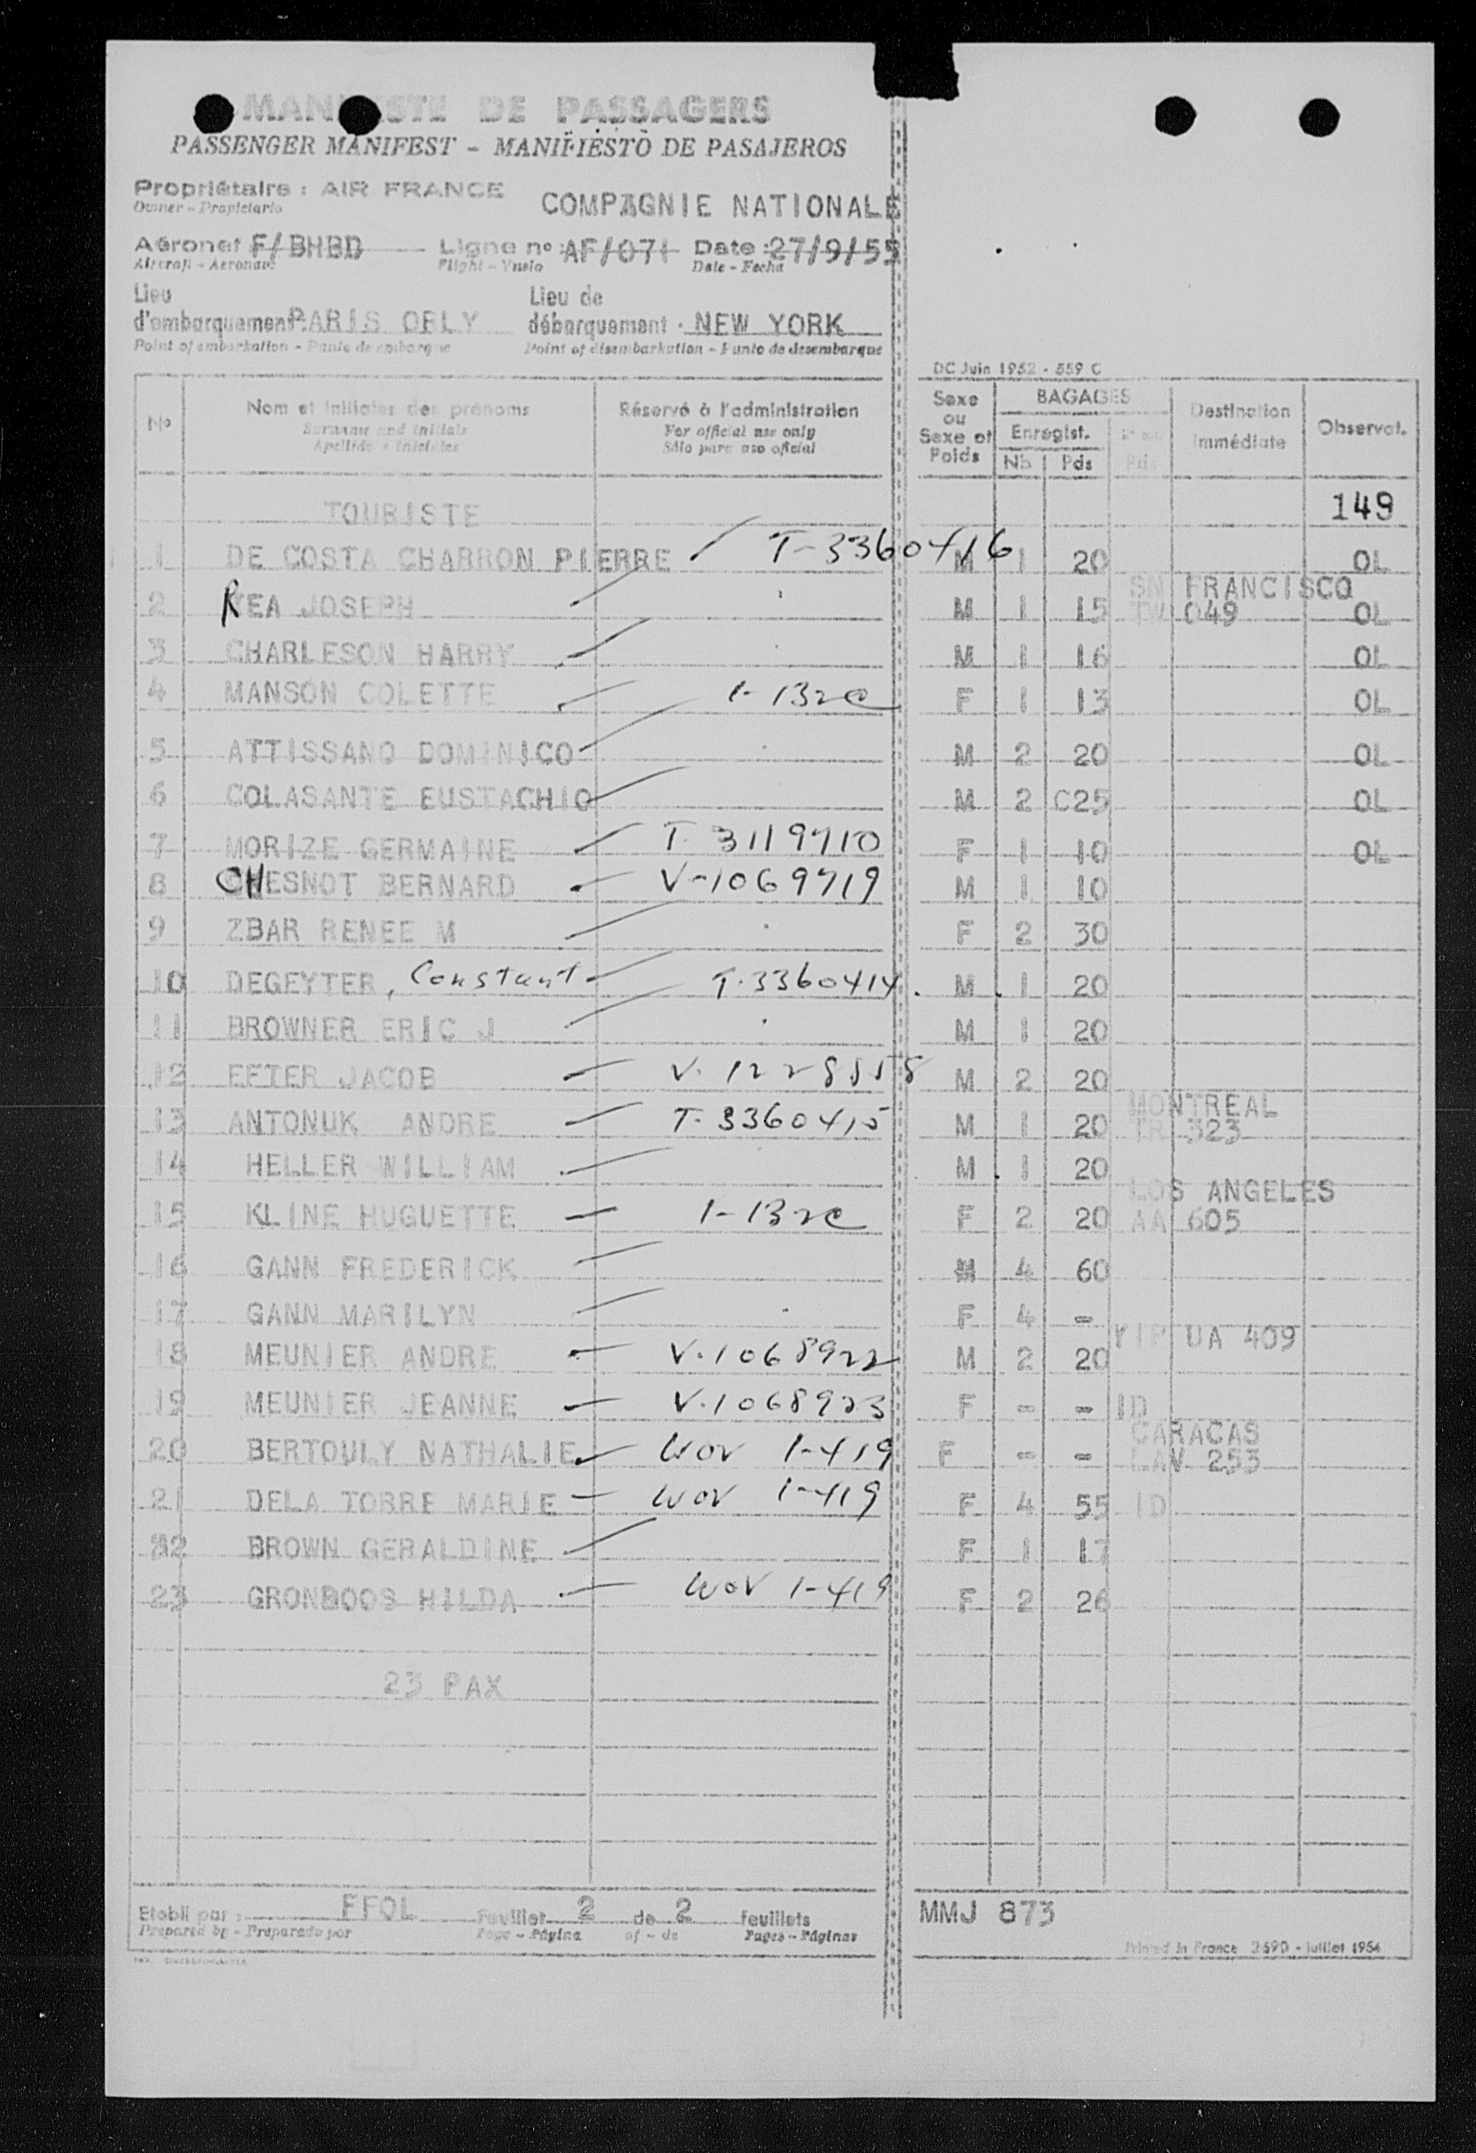 MANIFESTE DE PASSAGERS
PASSENGER MANIFEST - MANIFIESTO DE PASAJEROS
Propriétaire : AIR FRANCE COMPAGNIE NATIONALE
Owner - Propietario
Aéronef F/BHBD Ligne nº AF/071 Date : 27/9/55
Aircraft - Aeronave Flight - Vuelo Date - Fecha
Lieu Lieu de
d'embarquement PARIS ORLY débarquement NEW YORK
Point of embarkation - Punto de embarque Point of disembarkation - Punto de desembarque
DC Juin 1952 - 559 C
Nº Nom et initiales des prénoms Réservé à l'administration Sexe ou Sexe et Poids BAGAGES Enregist. Nb Pds Destination immédiate Observat.
Surname and initials For official use only
Apellido e iniciales Sólo para uso oficial
TOURISTE 149
1 DE COSTA CHARRON PIERRE T-3360416 M 1 20 OL
SN FRANCISCO
2 REA JOSEPH M 1 15 TW 049 OL
3 CHARLESON HARRY M 1 16 OL
4 MANSON COLETTE 1-132c F 1 13 OL
5 ATTISSANO DOMINICO M 2 20 OL
6 COLASANTE EUSTACHIO M 2 C25 OL
7 MORIZE GERMAINE T 3119710 F 1 10 OL
8 CHESNOT BERNARD V-1069719 M 1 10
9 ZBAR RENEE M F 2 30
10 DEGEYTER, Constant T.3360414 M 1 20
11 BROWNER ERIC J M 1 20
12 EFTER JACOB V. 1228558 M 2 20
MONTREAL
13 ANTONUK ANDRE T-3360415 M 1 20 TR 323
14 HELLER WILLIAM M 1 20
LOS ANGELES
15 KLINE HUGUETTE 1-132c F 2 20 AA 605
16 GANN FREDERICK M 4 60
17 GANN MARILYN F 4 -
UA 409
18 MEUNIER ANDRE V.1068922 M 2 20
19 MEUNIER JEANNE V.1068923 F - - ID
CARACAS
20 BERTOULY NATHALIE WOV 1-419 F - - LAV 253
21 DELA TORRE MARIE WOV 1-419 F 4 55 ID
22 BROWN GERALDINE F 1 17
23 GRONDOOS HILDA WOV 1-419 F 2 26
23 PAX
Etabli par : FFOL Feuillet 2 de 2 feuillets MMJ 873
Prepared by - Preparado por Page - Página of - de Pages - Páginas
Printed in France 2690 - Juillet 1954